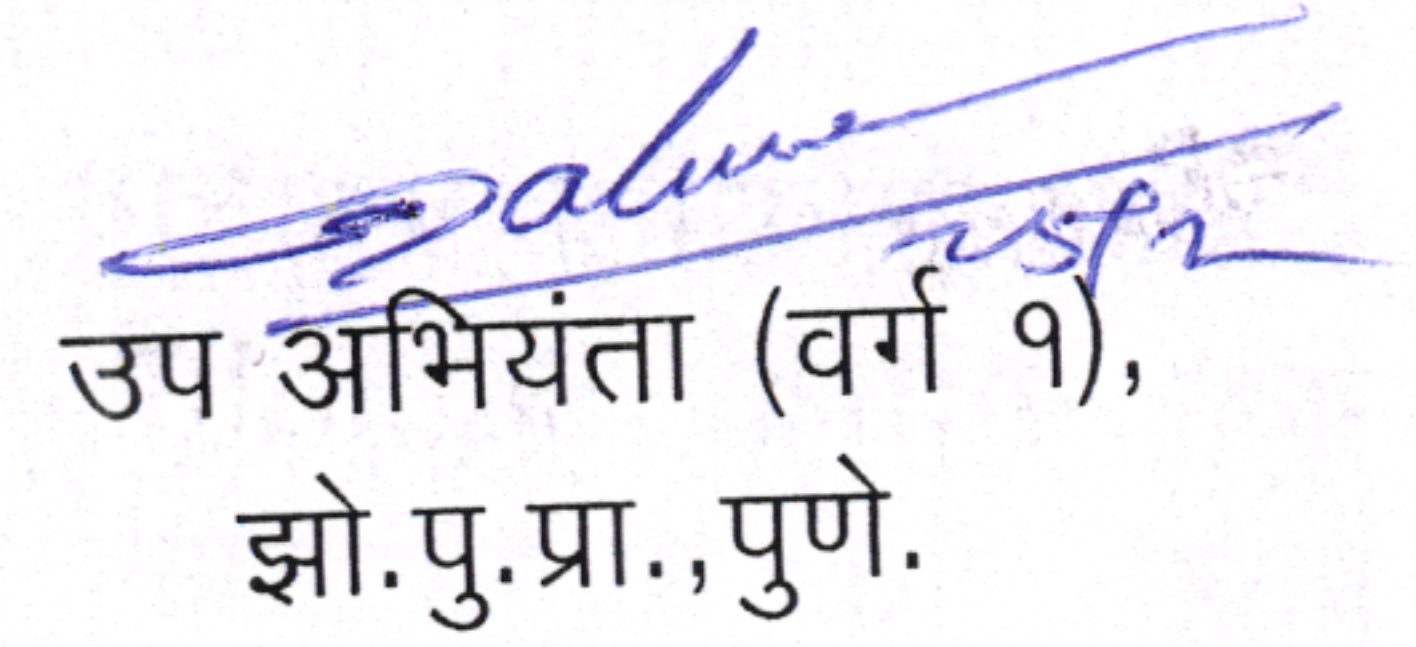 उप अभियंता (वर्ग १),
झो.पु.प्रा.,पुणे.